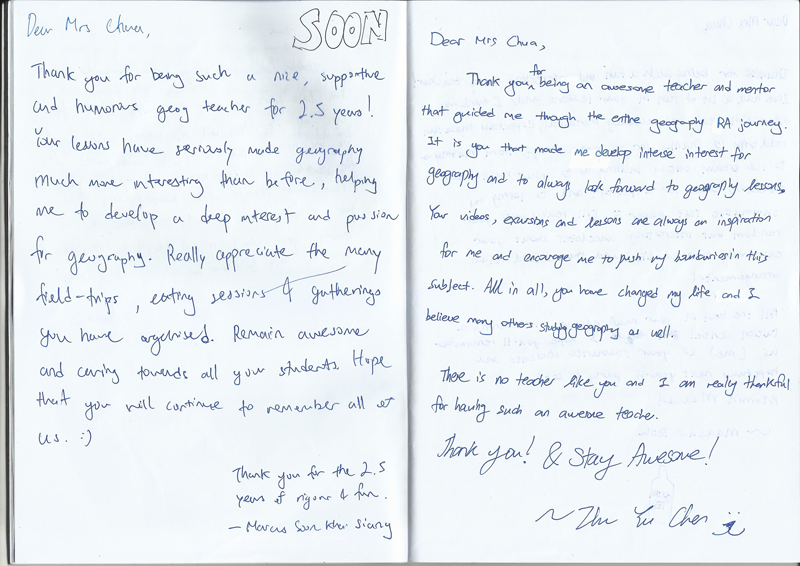 Dear Mrs Chua,
SOON
Thank you for being such a nice, supportive
and humorous geog teacher for 2.5 years!
Your lessons have seriously made geography
much more interesting than before, helping
me to develop a deep interest and passion
for geography. Really appreciate the many
field-trips, eating sessions & gatherings
you have organised. Remain awesome
and caring towards all your students. Hope
that you will continue to remember all of
us. :)
Thank you for the 2.5
years of rigour & fun.
- Marcus Soon Khai Siang
Dear Mrs Chua,
Thank you for being an awesome teacher and mentor
that guided me through the entire geography RA journey.
It is you that made me develop intense interest for
geography and to always look forward to geography lessons.
Your videos, excursions and lessons are always an inspiration
for me and encourage me to push my boundaries in this
subject. All in all, you have changed my life and I
believe many others studying geography as well.
There is no teacher like you and I am really thankful
for having such an awesome teacher.
Thank you! & Stay Awesome!
~ Zhu Yu Chen